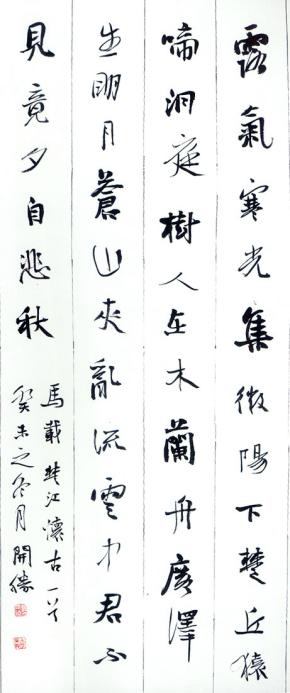 露氣寒光集微陽下楚丘猿
啼洞庭樹人在木蘭舟廣澤
生明月蒼山夾亂流雲中君不
見竟夕自悲秋
馬戴楚江懷古一首
癸未之冬月開勝